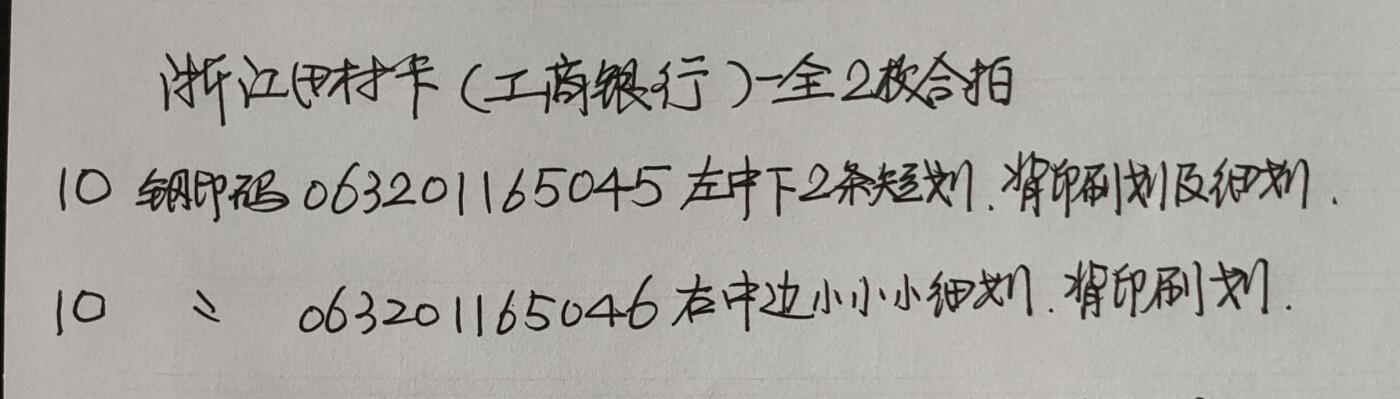 浙江田村卡（工商银行）-全2枚合拍
10 钢印码 063201165045 左中下2条短划.背印刷划及细划.
10 〃 063201165046 右中边小小小细划.背印刷划.